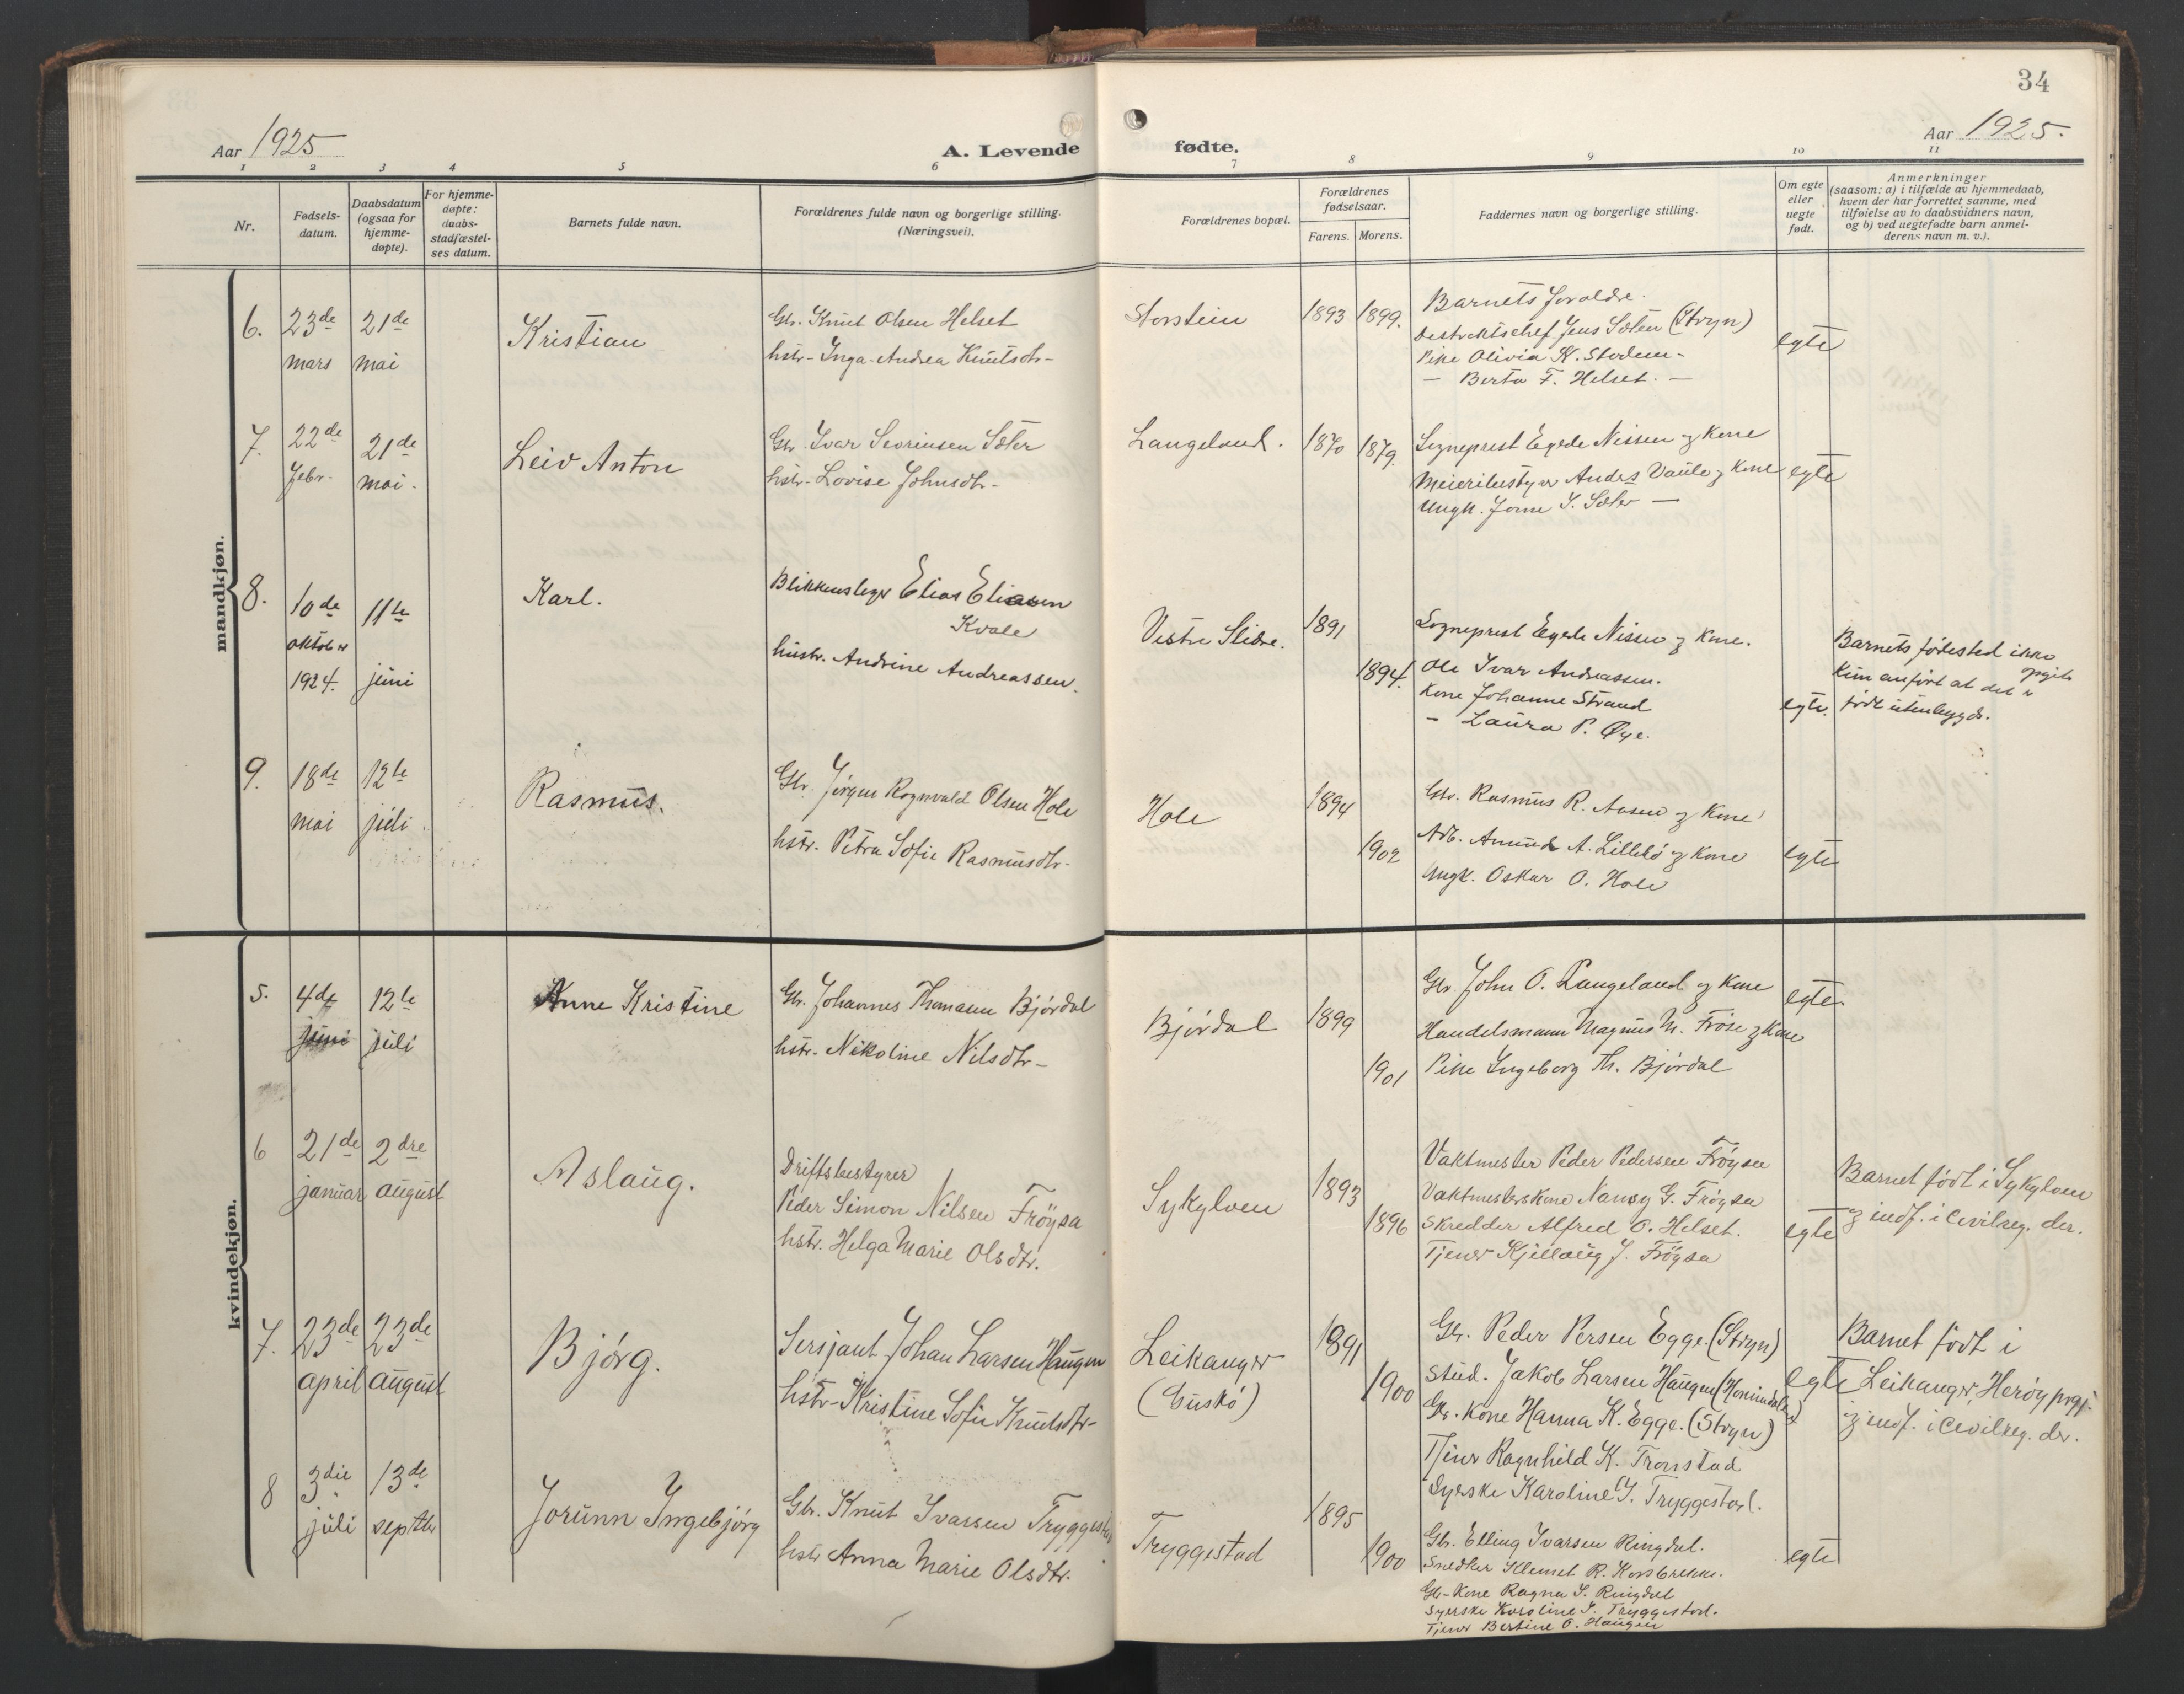 34
Aar 1925
A. Levende
fødte.
Aar 1925.
1 2 3 4 5 6 7 8 9 10 11
Nr.
Fødsels-
datum.
Daabsdatum
(ogsaa for
hjemme-
døpte).
For hjemme-
døpte:
daabs-
stadfæstel-
ses datum.
Barnets fulde navn.
Forældrenes fulde navn og borgerlige stilling.
(Næringsvei).
Forældrenes bopæl.
Forældrenes
fødselsaar.
Farens. Morens.
Faddernes navn og borgerlige stilling.
Om egte
eller
uegte
født.
Anmerkninger
(saasom: a) i tilfælde av hjemmedaab,
hvem der har forrettet samme, med
tilføielse av to daabsvidners navn,
og b) ved uegtefødte barn anmel-
derens navn m. v.).
mandkjøn.
6.
23de
mars
21de
mai
Kristian
Gbr. Knut Olsen Helset
hstr. Inga Andrea Knutsdtr-
Storstein
1893
1899.
Barnets foraldre.
Jens Sæten (Stryn)
Pike Olivia K.
- Berta F. Helset. -
egte
7.
22de
febr-
21de
mai.
Leiv Anton
Gbr Ivar Sevrinsen Sæter
hstr- Lovise Johnsdtr-
Langeland.
1870
1879.
Sogneprest Egede Nissen og Kone
Meieribestyrer Andrs Vaule og Kone
Ungk. Jorne I. Sæter -
egte
8.
10de
oktober
1924.
11te
juni
Karl.
Blikkenslager Elias Eliassen
Kvale
hustr. Andrine Andreassen.
Vestre Slidre.
1891
1894.
Sogneprest Egede Nissen og Kone.
Ole Ivar Andreassen.
Kone Johanne Strand
- Laura P. Øye.
egte.
Barnets fødested ikke
opgit
Kun anført at det er
født utenbygds.
9.
18de
mai
12te
juli.
Rasmus.
Gbr. Jørgen Rognvald Olsen Hole
hstr. Petra Sofie Rasmusdtr.
Hole
1894
1902
Gbr. Rasmus R. Aasen og Kone
Arb. Amund A. Lillebø og Kone
Ungk. Oskar O. Hole
egte
kvindekjøn.
5.
4de
juni
12te
juli
Anne Kristine
Gbr. Johannes Thomasen Bjørdal
hstr. Nikoline Nilsdtr-
Bjørdal
1899
1901
Gbr. John O. Langeland og Kone
Handelsmann Magnus M. Frøse og Kone
Pike Ingeborg Th. Bjørdal
egte.
6
21de
januar
2dre
august
Aslaug.
Driftsbestyrer
Peder Simon Nilsen Frøysa
hstr. Helga Marie Olsdtr.
Sykylven
1893
1896
Vaktmester Peder Pedersen Frøysa
Vaktmesterskone Nansy G. Frøysa
Skredder Alfred O. Helset.
Tjener Kjellaug J. Frøysa
egte
Barnet født i Sykylven
og indf. i Civilreg. der.
7.
23de
april
23de
august
Bjørg.
Sersjant Johan Larsen Haugen
hstr- Kristine Sofie Knutsdtr-
Leikanger
(Guskø)
1891
1900
Gbr. Peder Persen Egge. (Stryn)
Stud. Jakob Larsen Haugen (Hornindalen)
Gbr. Kone Hanna K. Egge. (Stryn)
Tjener Ragnhild K. Tronstad
Syerske Karoline I. Tryggestad.
egte
Barnet født i
Leikanger, Herøy prgj.
og indf. i Civilreg. der.
8
3die
juli
13de
septbr
Jorunn Ingebjørg
Gbr. Knut Ivarsen Tryggestad
hstr Anna Marie Olsdtr.
Tryggestad
1895
1900
Gbr. Elling Ivarsen Ringdal.
Snedker Klemet R. Korsbrekke.
Gbr-Kone Ragna I. Ringdal
Syerske Karoline I. Tryggestad.
Tjener Bertine O. Haugen
egte